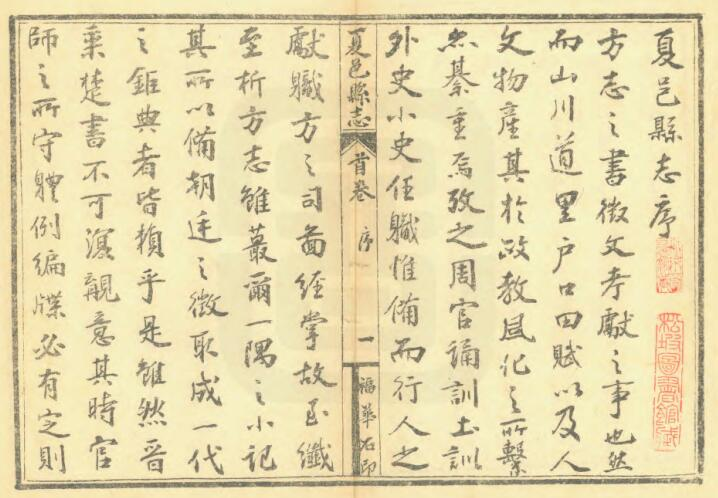 夏邑縣志序
方志之書徵文考獻之事也然
而山川道里戶口田賦以及人
文物產其於政教風化之所繫
焉綦重焉攷之周官誦訓土訓
外史小史任職惟備而行人之
夏邑縣志
首卷
序
一
福華石印
獻職方之司圖經掌故至纖
至析方志雖蕞爾一隅之小記
其所以備朝廷之徵取成一代
之鉅典者皆賴乎是雖然晉
乘楚書不可濅覩意其時官
師之所守體例編牒必有定則
松坡圖書館藏